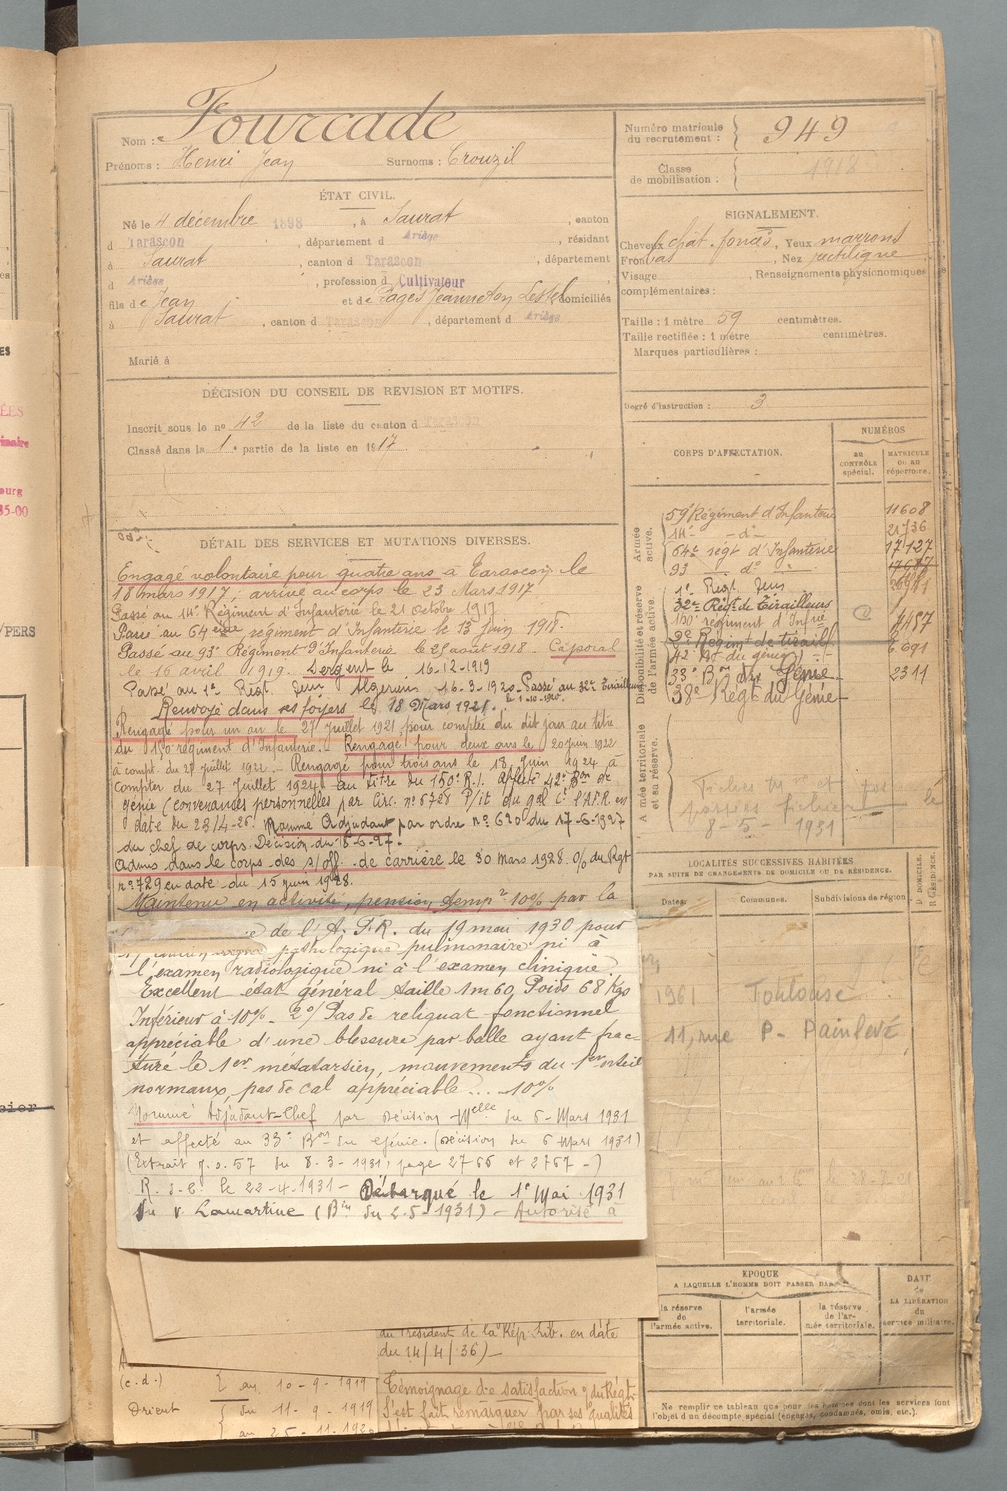 Nom : Fourcade
Prénoms : Henri Jean Surnoms : Crouzil
Numéro matricule du recrutement : 949
Classe de mobilisation : 1918
ÉTAT CIVIL.
Né le 4 décembre 1898, à Saurat, canton
d Tarascon, département d Ariège, résidant
à Saurat, canton d Tarascon, département
d Ariège, profession d Cultivateur
fils de Jean et de Pagès Jeanneton Lestel domiciliés
à Saurat, canton d Tarascon, département d Ariège
Marié à
SIGNALEMENT.
Cheveux chât. foncés, Yeux marrons
Front bas, Nez rectiligne
Visage, Renseignements physionomiques
complémentaires :
Taille : 1 mètre 59 centimètres.
Taille rectifiée : 1 mètre centimètres.
Marques particulières :
Degré d'instruction : 3
DÉCISION DU CONSEIL DE REVISION ET MOTIFS.
Inscrit sous le no 42 de la liste du canton d Tarascon
Classé dans la 1e partie de la liste en 1917
DÉTAIL DES SERVICES ET MUTATIONS DIVERSES.
Engagé volontaire pour quatre ans à Tarascon le
18 mars 1917 ; arrivé au corps le 23 Mars 1917
Passé au 14e Régiment d'Infanterie le 21 octobre 1917
Passé au 64ème régiment d'Infanterie le 13 juin 1918.
Passé au 93e Régiment d'Infanterie le 25 août 1918. Caporal
le 16 avril 1919. Sergent le 16-12-1919
Passé au 1er Régt. 16-3-1920 - Passé au 32e Tirailleurs
le 1-10-1920.
Renvoyé dans ses foyers le 18 Mars 1921.
Rengagé pour un an le 27 juillet 1921, pour compter du dit jour au titre
du 150e régiment d'Infanterie. Rengagé pour deux ans le 20 Juin 1922
à compt. du 27 juillet 1922. - Rengagé pour trois ans le 18 Juin 1924 à
compter du 27 Juillet 1924 au titre du 150e R.I. Affecté 42e Bon de
génie (convenances personnelles par Circ. no 6728 P/it du gal Ct l'A.F.R. en
date du 23/4-26. Nommé Adjudant par ordre no 620 du 17-6-1927
du chef de corps. Décision du 15-6-27.
Admis dans le corps des s/off. de carrière le 30 Mars 1928. O/ du Rgt
no 729 en date du 15 juin 1928.
Maintenu en activité, pension temp. 10% par la
de l'A.F.R. du 19 mai 1930 pour
pathologique pulmonaire ni à
l'examen radiologique ni à l'examen clinique.
Excellent état général taille 1m60, Poids 68 Kgs
Inférieur à 10% - 2o/ Pas de reliquat fonctionnel
appréciable d'une blessure par balle ayant frac-
turé le 1er métatarsien, mouvements du 1er orteil
normaux, pas de cal appréciable ... -10%
Nommé Adjudant-Chef par Décision Melle du 6 Mars 1931
et affecté au 33e Bon du Génie. (Décision du 6 Mars 1931)
(Extrait J.O. 57 du 8-3-1931, page 2766 et 2767-)
R.d.C. le 22-4-1931 - Débarqué le 1er Mai 1931
du v. Lamartine (Bin du 2-5-1931) - Autorisé à
du Président de la Répub. en date
du 14/4/36) -
(c.d.) au 10-9-1919 Témoignage de satisfaction du Régt
Orient du 11-9-1919 S'est fait remarquer par ses qualités
au 25-11-192
CORPS D'AFFECTATION.
NUMÉROS
au CONTRÔLE spécial.
MATRICULE ou au répertoire.
Armée active.
59e Régiment d'Infanterie 11608
14e - do - 21736
64e régt d'Infanterie 17127
93 - do -
1er Régt
Disponibilité et réserve de l'armée active.
32e Régt de Tirailleurs
150e régiment d'Infrie 4457
9e Régimt de tiraill
42 Bt du génie 6691
33e Bon du Génie 2311
38e Régt du Génie
Armée territoriale et sa réserve.
8-5-1931
LOCALITÉS SUCCESSIVES HABITÉES
PAR SUITE DE CHANGEMENTS DE DOMICILE OU DE RÉSIDENCE.
Dates. Communes. Subdivisions de région. D DOMICILE. R RÉSIDENCE.
1961 Toulouse
11, rue P- Painlevé
ÉPOQUE
A LAQUELLE L'HOMME DOIT PASSER DANS
la réserve de l'armée active.
l'armée territoriale.
la réserve de l'armée territoriale.
DATE de LA LIBÉRATION du service militaire.
Ne remplir ce tableau que pour les hommes dont les services font
l'objet d'un décompte spécial (engagés, condamnés, omis, etc.).